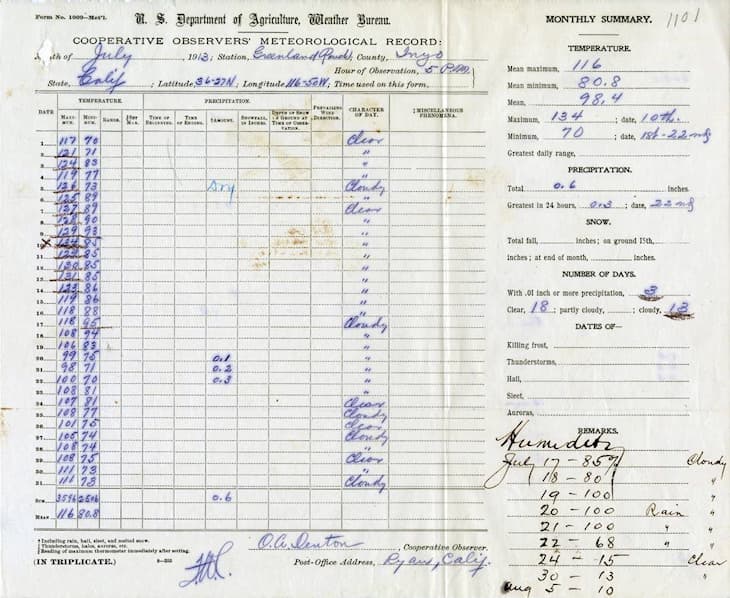 Form No. 1009—Met'l.
U. S. Department of Agriculture, Weather Bureau.
COOPERATIVE OBSERVERS' METEOROLOGICAL RECORD:
Month of July, 1913; Station, Greenland Ranch; County, Inyo
State, Calif; Latitude, 36-27N; Longitude, 116-50W; Hour of Observation, 5 P.M.
Time used on this form,
DATE TEMPERATURE. PRECIPITATION. PREVAILING WIND DIRECTION. CHARACTER OF DAY. MISCELLANEOUS PHENOMENA.
MAXIMUM. MINIMUM. RANGE. SET MAX. TIME OF BEGINNING. TIME OF ENDING. AMOUNT. SNOWFALL, IN INCHES. DEPTH OF SNOW ON GROUND AT TIME OF OBSERVATION.
1 117 70 Clear
2 121 71 "
3 124 83 "
4 119 77 "
5 126 73 Cloudy
6 125 89 "
7 127 89 Clear
8 90 "
9 129 93 "
10 134 85 "
11 85 "
12 130 85 "
13 131 85 "
14 86 "
15 119 86 "
16 118 88 "
17 118 95 Cloudy
18 108 94 "
19 106 83 "
20 99 75 0.1 "
21 98 71 0.2 "
22 100 70 0.3 "
23 108 81 "
24 107 81 Clear
25 108 77 Cloudy
26 101 75 Clear
27 105 74 Cloudy
28 108 74 "
29 108 75 Clear
30 111 73 "
31 111 73 Cloudy
SUM 3596 2506 0.6
MEAN 116 80.8
* Including rain, hail, sleet, and melted snow.
† Thunderstorms, halos, auroras, etc.
‡ Reading of maximum thermometer immediately after setting.
(IN TRIPLICATE.)
O.A. Denton, Cooperative Observer.
Post-Office Address, Ryan, Calif.
MONTHLY SUMMARY. 1101
TEMPERATURE.
Mean maximum, 116
Mean minimum, 80.8
Mean, 98.4
Maximum, 134; date, 10th.
Minimum, 70; date, 1st-22nd
Greatest daily range,
PRECIPITATION.
Total 0.6 inches.
Greatest in 24 hours, 0.3; date, 22nd
SNOW.
Total fall, inches; on ground 15th,
inches; at end of month, inches.
NUMBER OF DAYS.
With .01 inch or more precipitation, 3
Clear, 18; partly cloudy, ; cloudy, 13
DATES OF—
Killing frost,
Thunderstorms,
Hail,
Sleet,
Auroras,
REMARKS.
Humidity
July 17 – 85% Cloudy
18 – 80 "
19 – 100 "
20 – 100 Rain "
21 – 100 " "
22 – 68 " "
24 – 15 Clear
30 – 13 "
Aug 5 – 10